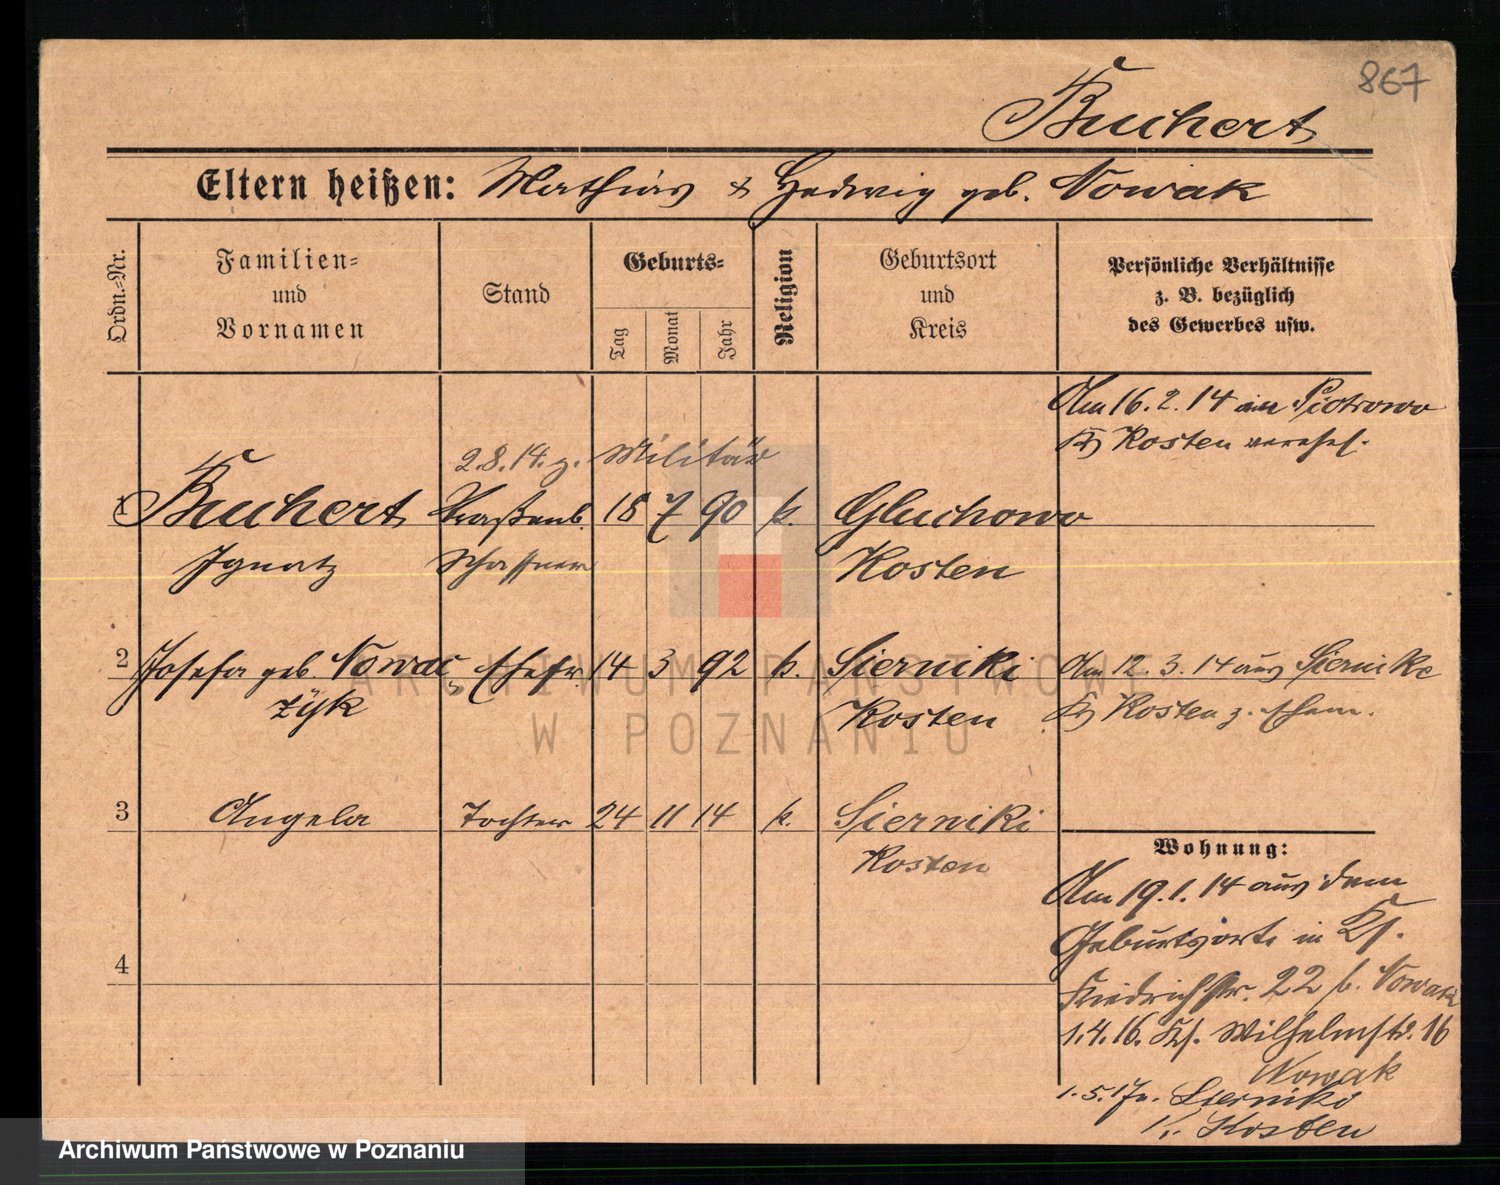 867
Buchert
Eltern heißen: Mathias & Hedwig geb. Nowak
Ordn.-Nr.
Familien-
und
Vornamen
Stand
Geburts-
Tag
Monat
Jahr
Religion
Geburtsort
und
Kreis
Persönliche Verhältnisse
z. B. bezüglich
des Gewerbes usw.
Am 16. 2. 14 in Piotrowo
Kr Kosten verehel.
2.8.14. z. Militär
1 Buchert Straßenb. 18 7 90 k. Gluchowo
Ignatz Schaffner Kosten
2 Josefa geb. Nowac Ehefr. 14 3 92 k. Sierniki Am 12. 3. 14 aus Sierniki
zyk Kosten Kr Kosten z. Ehem.
3 Angela Tochter 24 11 14 k. Sierniki
Kosten
Wohnung:
Am 19. 1. 14 aus dem
Geburtsorte in
Friedrichstr. 22 b. Nowak
1.4.16. Wilhelmstr. 16
Nowak
4
1.5.17 n. Sierniki
Kr. Kosten
ARCHIWUM PAŃSTWOWE
W POZNANIU
Archiwum Państwowe w Poznaniu